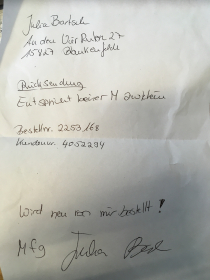 Julia Bartsch
An den Vier Ruten 27
15827 Blankenfelde
Rücksendung
Entspricht keiner M
Bestellnr. 2253168
Kundennr. 4052294
Wird neu von mir bestellt!
Mfg Julia